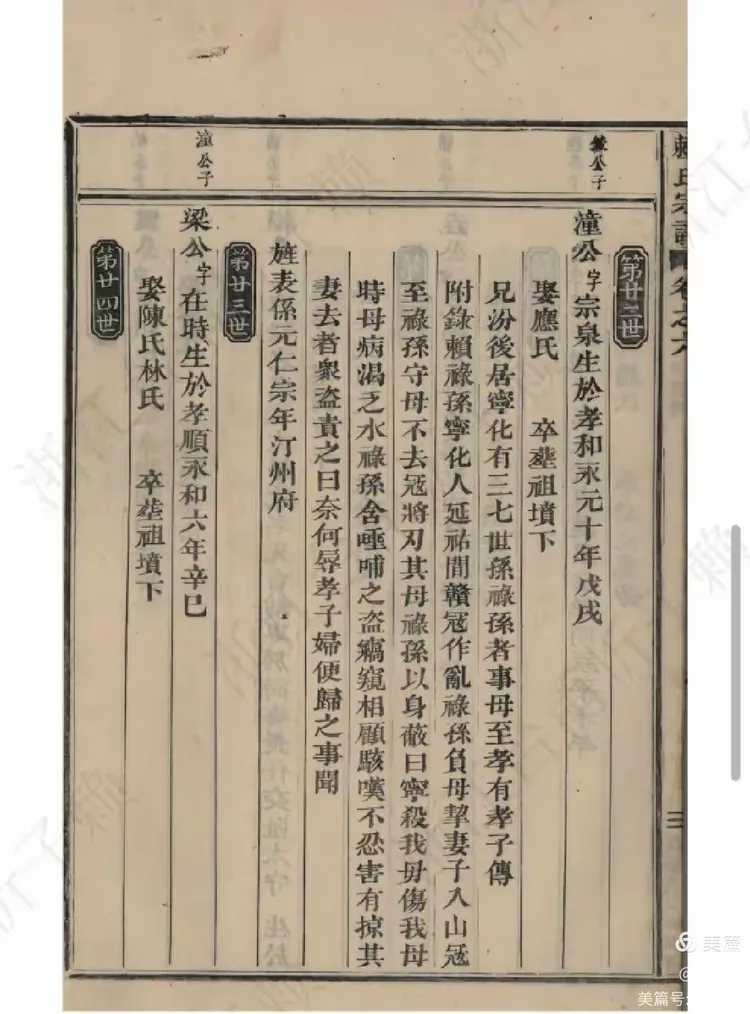 賴氏宗譜 卷之六
三
第廿二世
公子
潼公字宗泉生於孝和永元十年戊戌
娶應氏 卒塟祖墳下
兄汾後居寧化有三七世孫祿孫者事母至孝有孝子傳
附錄賴祿孫寧化人延祐間贛冦作亂祿孫負母挈妻子入山冦
至祿孫守母不去冦將刃其母祿孫以身蔽曰寧殺我毋傷我母
時母病渴乏水祿孫含唾哺之盜竊窺相顧駭嘆不忍害有掠其
妻去者衆盜責之曰奈何辱孝子婦使歸之事聞
旌表係元仁宗年汀州府
第廿三世
潼公子
梁公字在時生於孝順永和六年辛巳
娶陳氏林氏 卒塟祖墳下
第廿四世
美篇
@
美篇号: